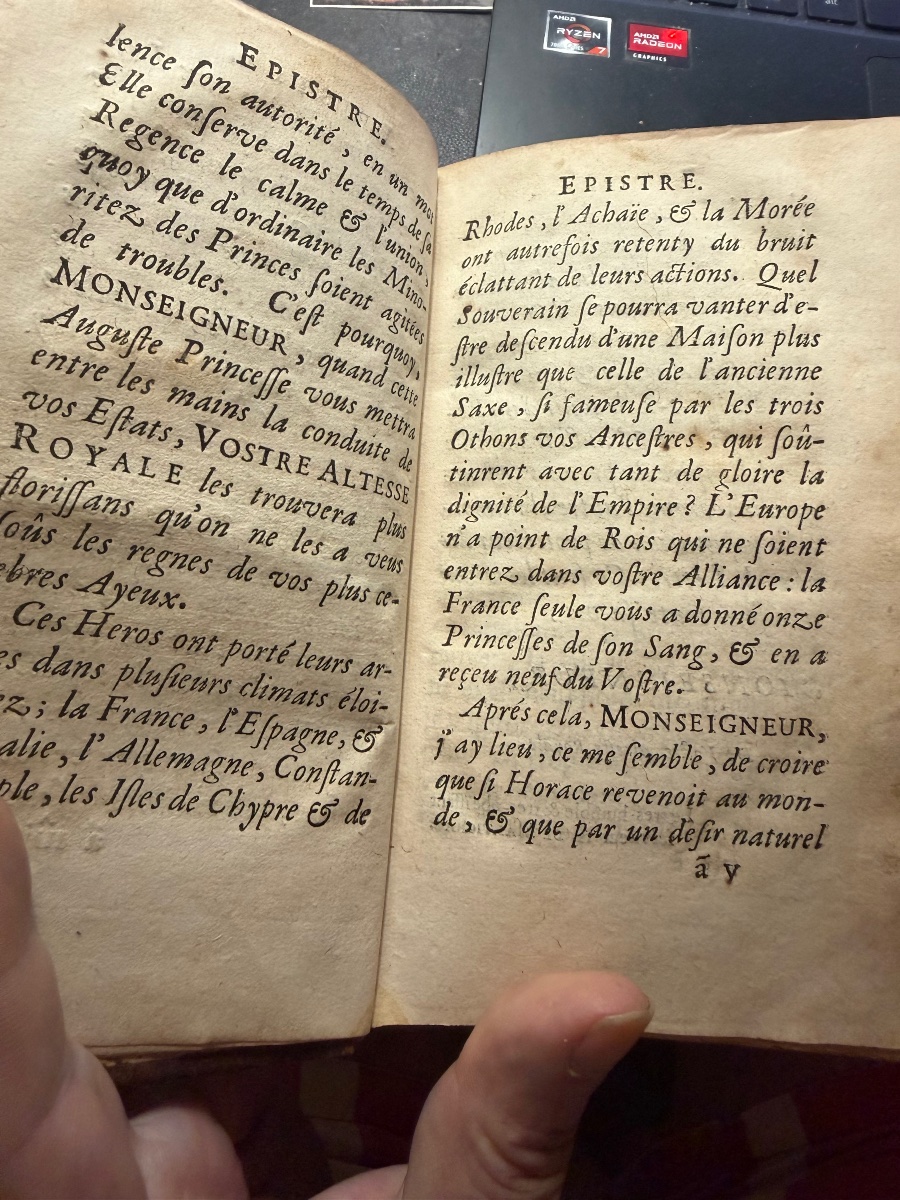 EPISTRE.
lence ſon autorité, en un mot
Elle conſerve dans le temps de ſa
Regence le calme & l'union,
quoy que d'ordinaire les Mino-
ritez des Princes ſoient agitées
de troubles. C'eſt pourquoy,
MONSEIGNEUR, quand cette
Auguſte Princeſſe vous mettra
entre les mains la conduite de
vos Eſtats, VOSTRE ALTESSE
ROYALE les trouvera plus
floriſſans qu'on ne les a veus
ſoûs les regnes de vos plus ce-
ebres Ayeux.
Ces Heros ont porté leurs ar-
es dans pluſieurs climats éloi-
ez; la France, l'Eſpagne, &
alie, l'Allemagne, Conſtan-
ple, les Iſles de Chypre & de
EPISTRE.
Rhodes, l'Achaïe, & la Morée
ont autrefois retenty du bruit
éclattant de leurs actions. Quel
Souverain ſe pourra vanter d'e-
ſtre deſcendu d'une Maiſon plus
illuſtre que celle de l'ancienne
Saxe, ſi fameuſe par les trois
Othons vos Anceſtres, qui ſoû-
tinrent avec tant de gloire la
dignité de l'Empire? L'Europe
n'a point de Rois qui ne ſoient
entrez dans voſtre Alliance: la
France ſeule vous a donné onze
Princeſſes de ſon Sang, & en a
reçeu neuf du Voſtre.
Aprés cela, MONSEIGNEUR,
j'ay lieu, ce me ſemble, de croire
que ſi Horace revenoit au mon-
de, & que par un deſir naturel
ã y
AMD
RYZEN
7
AMD
RADEON
GRAPHICS
alt